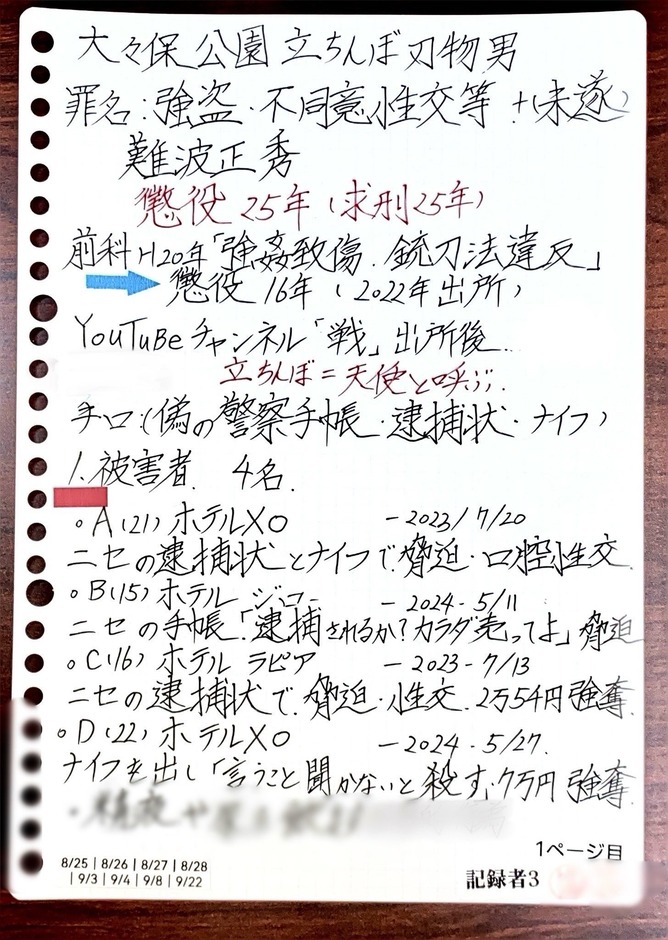 大々保公園立ちんぼ刃物男
罪名:強盗・不同意性交等+(未遂)
難波正秀
懲役25年(求刑25年)
前科H20年「強姦致傷.銃刀法違反」
懲役16年(2022年出所)
YouTuBeチャンネル「戦」出所後...
立ちんぼ=天使と呼ぶ.
手口:(偽の警察手帳・逮捕状・ナイフ)
1.被害者 4名.
○A(21)ホテルXO -2023/7/20
ニセの逮捕状とナイフで脅迫・口腔性交.
○B(15)ホテル -2024-5/11
ニセの手帳「逮捕されるか?カラダ売ってよ」脅迫
○C(16)ホテル ラピア -2023-7/13
ニセの逮捕状で.脅迫・性交.2万54円強奪.
○D(22)ホテルXO -2024-5/27.
ナイフを出し「言うこと聞かないと殺す.7万円強奪.
1ページ目
8/25 | 8/26 | 8/27 | 8/28
| 9/3 | 9/4 | 9/8 | 9/22
記録者3